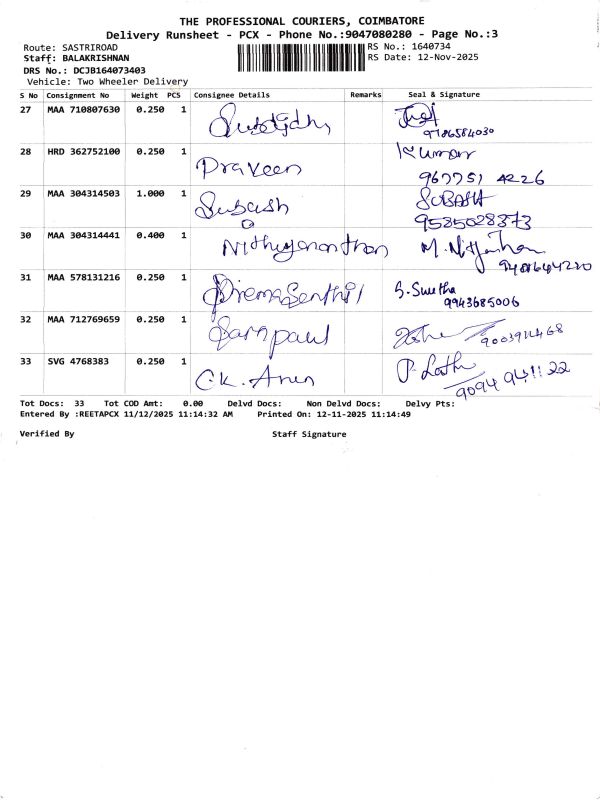 THE PROFESSIONAL COURIERS, COIMBATORE
Delivery Runsheet - PCX - Phone No.:9047080280 - Page No.:3
Route: SASTRIROAD
RS No.: 1640734
Staff: BALAKRISHNAN
RS Date: 12-Nov-2025
DRS No.: DCJB164073403
Vehicle: Two Wheeler Delivery
S No Consignment No Weight PCS Consignee Details Remarks Seal & Signature
27 MAA 710807630 0.250 1
9786584030
28 HRD 362752100 0.250 1 Praveen Kumar
967751 4226
29 MAA 304314503 1.000 1 Subash SUBASH
9585028373
30 MAA 304314441 0.400 1 Nithyananthan
31 MAA 578131216 0.250 1 PremaSenthil S. Swetha
9943685006
32 MAA 712769659 0.250 1
33 SVG 4768383 0.250 1 C.K. Arun P. Latha
Tot Docs: 33 Tot COD Amt: 0.00 Delvd Docs: Non Delvd Docs: Delvy Pts:
Entered By :REETAPCX 11/12/2025 11:14:32 AM Printed On: 12-11-2025 11:14:49
Verified By Staff Signature